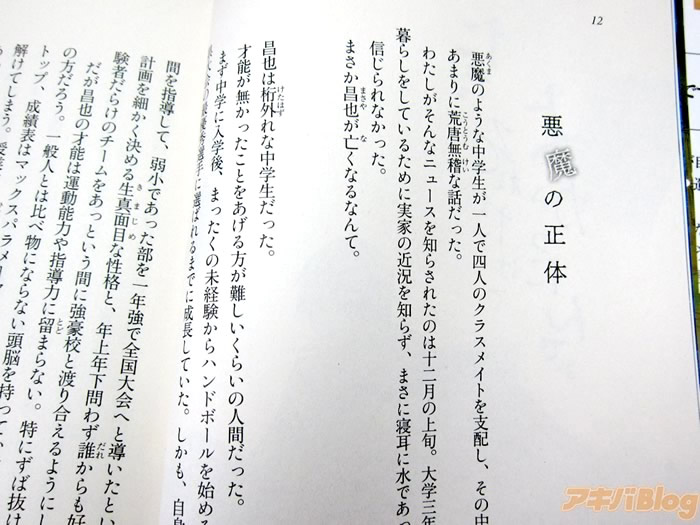 12
悪魔の正体
悪魔のような中学生が一人で四人のクラスメイトを支配し、その中
あまりに荒唐無稽な話だった。
わたしがそんなニュースを知らされたのは十二月の上旬。大学三年
暮らしをしているために実家の近況を知らず、まさに寝耳に水であっ
信じられなかった。
まさか昌也が亡くなるなんて。
昌也は桁外れな中学生だった。
才能が無かったことをあげる方が難しいくらいの人間だった。
まず中学に入学後、まったくの未経験からハンドボールを始める
選手に選ばれるまでに成長していた。しかも、自身
間を指導して、弱小であった部を一年強で全国大会へと導いたとい
計画を細かく決める生真面目な性格と、年上年下問わず誰からも好
験者だらけのチームをあっという間に強豪校と渡り合えるようにし
だが昌也の才能は運動能力や指導力に留まらない。特にずば抜け
の方だろう。一般人とは比べ物にならない頭脳を持って、
トップ、成績表はマックスパラメータ
解けてしまう。授業
アキバBlog